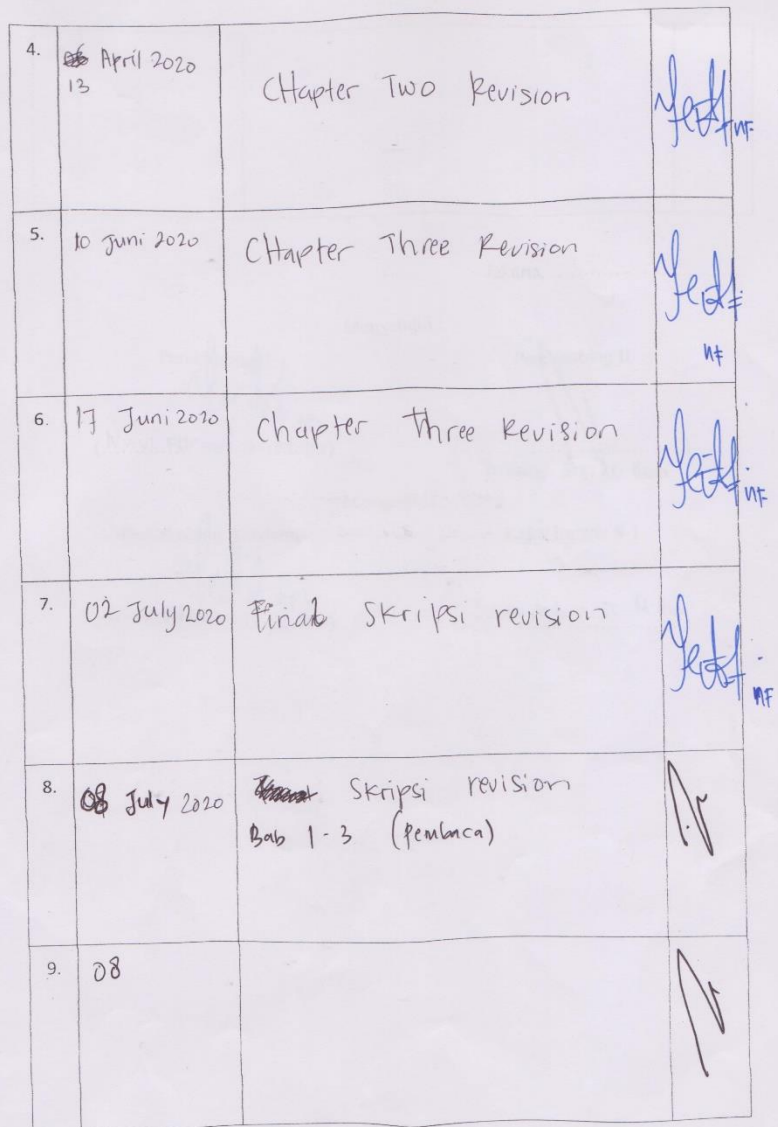 4.
April 2020
13
CHapter Two Revision
nF
5.
10 Juni 2020
CHapter Three Revision
nF
6.
17 Juni 2020
Chapter Three Revision
nF
7.
02 July 2020
Final Skripsi revision
nF
8.
08 July 2020
Skripsi revision
Bab 1-3 (Pembaca)
9.
08